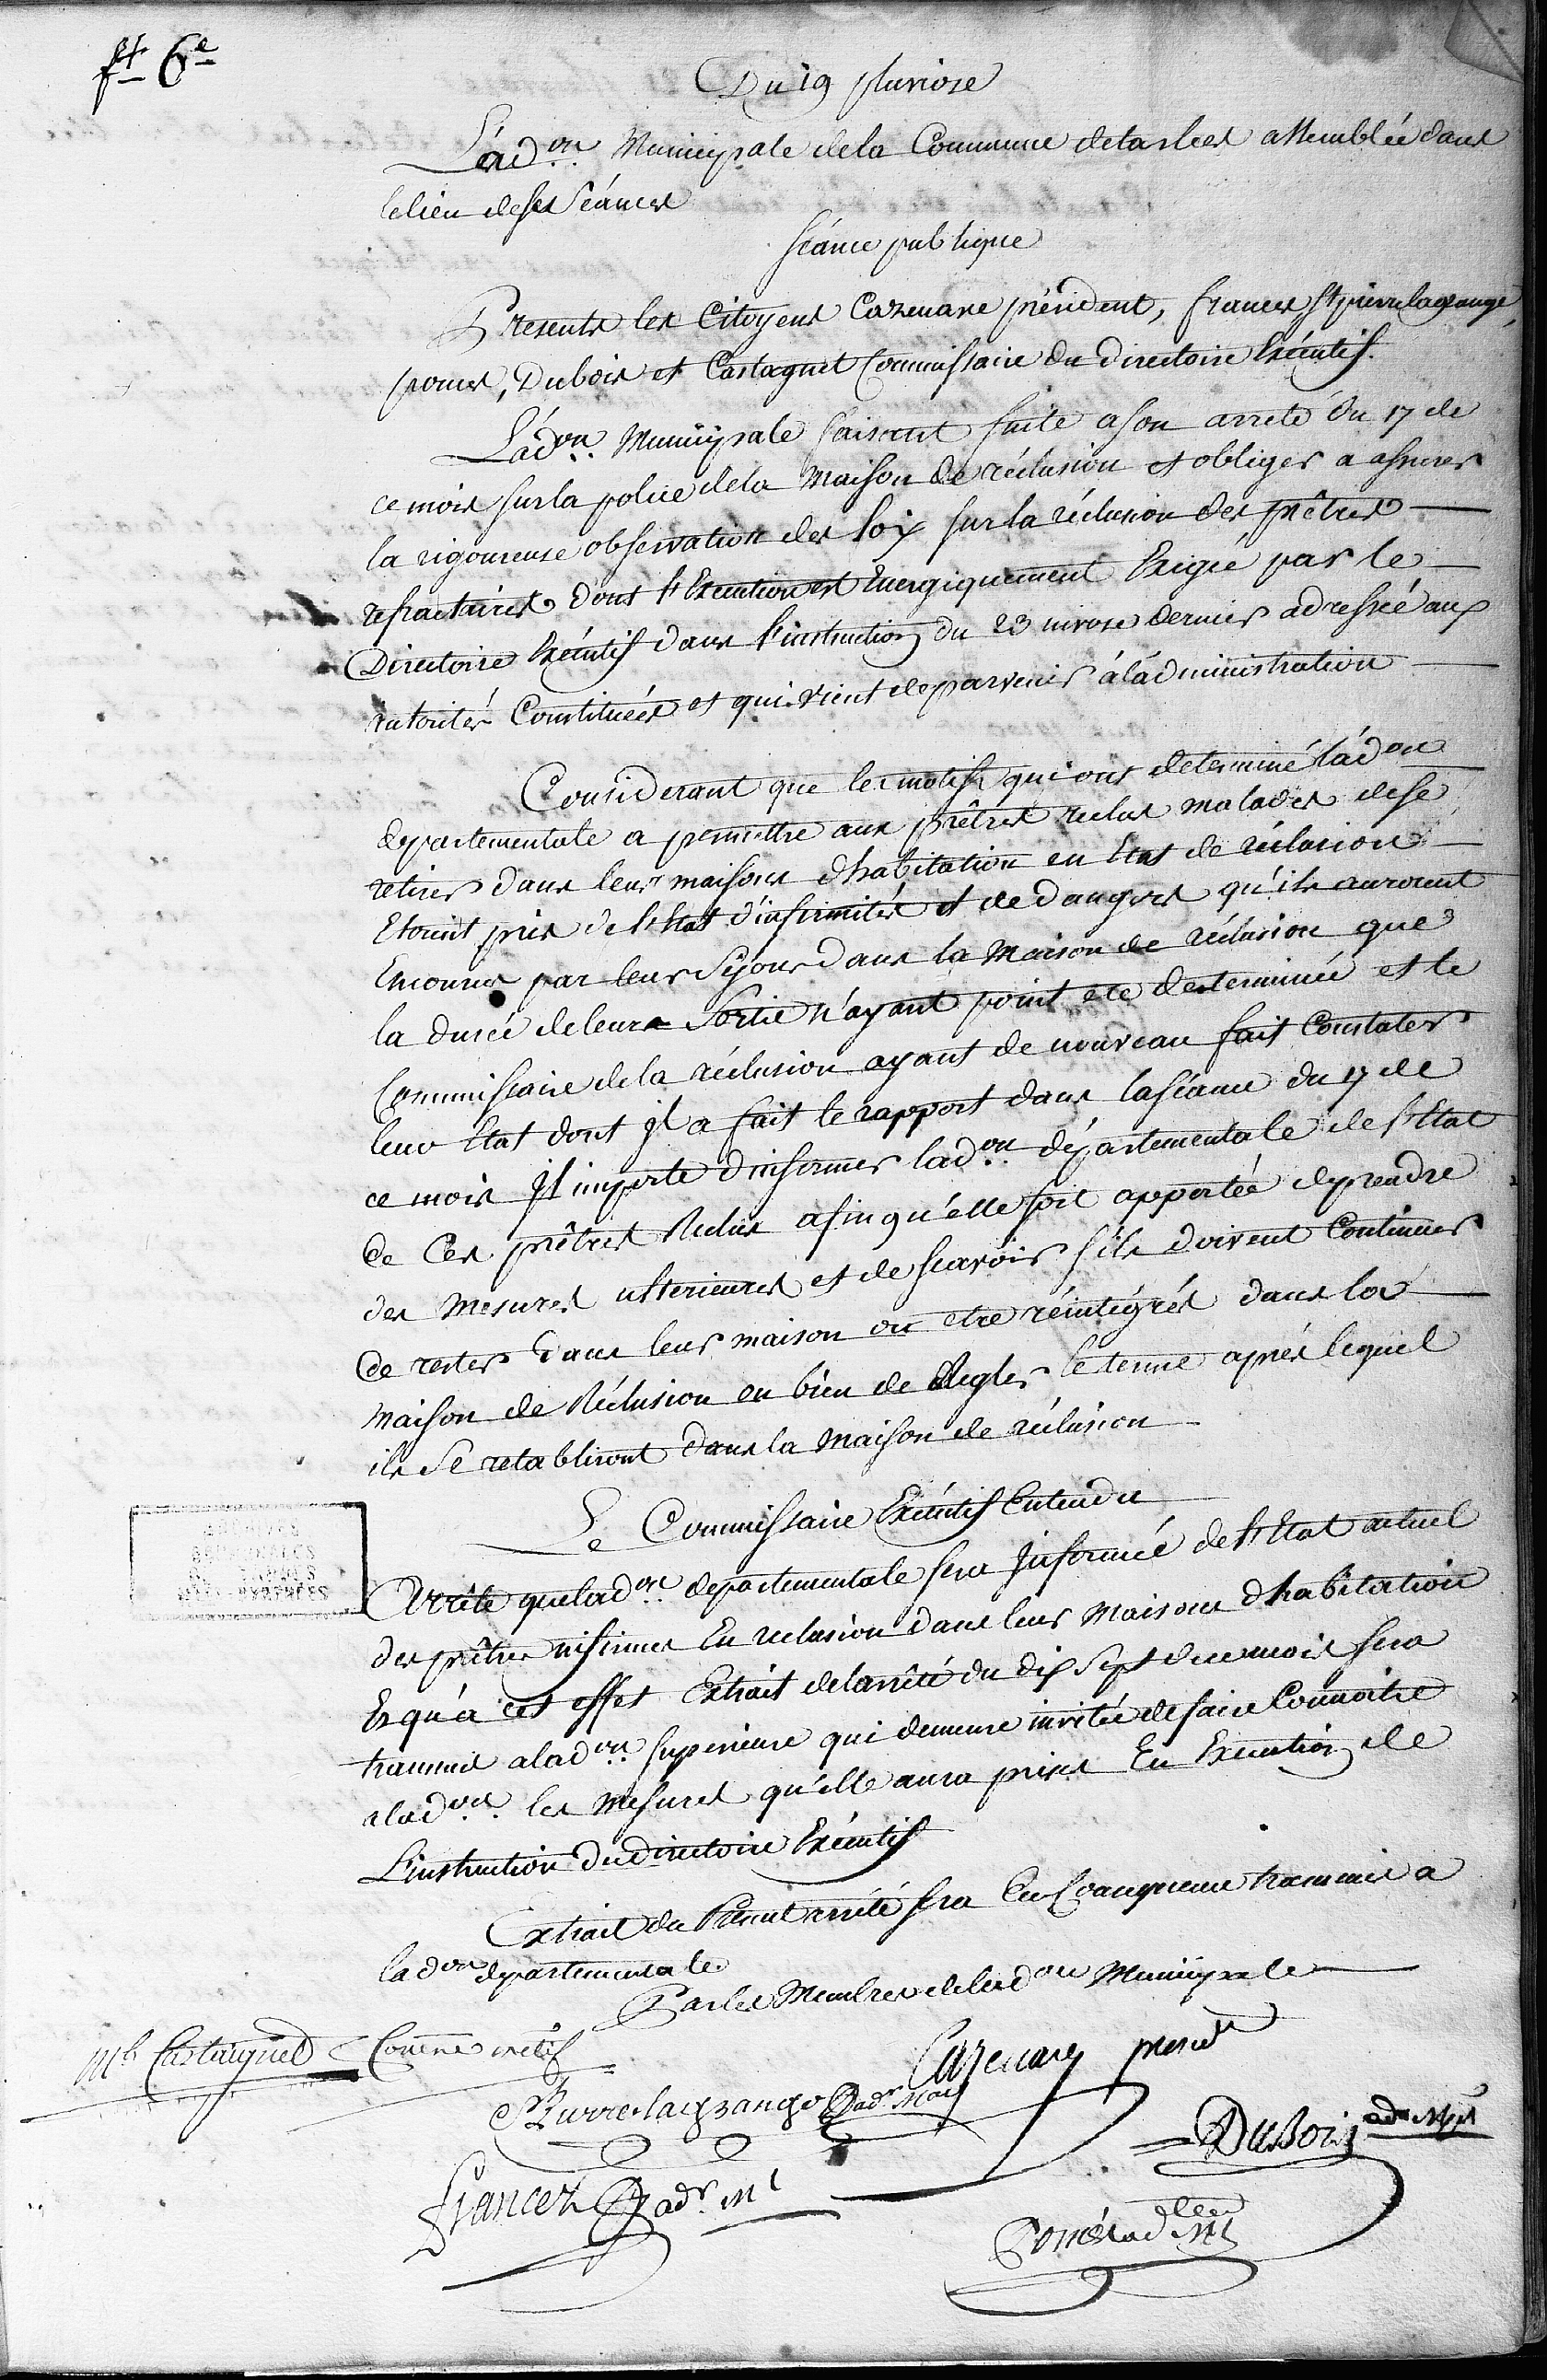 ft 6e
Du 19 pluviose
L'adon Municipale dela Commune detarbes assemblée dans
lelieu deses Séances
séance publique
Presents les Citoyens Cazenave président, frances St pierrelagrange,
pomes, Dubois et Castagnet Commissaire du directoire Exécutif.
L'adon Municipale faisant suite a son arreté du 17 de
ce mois sur la police dela maison de réclusion et obliger a assurer
la rigoureuse observation des loix sur la réclusion des prêtres
refractaires dont l'Execution est Energiquement Exigée par le
Directoire Exécutif dans l'instruction du 23 nivose dernier adressée aux
autorités Constituées et qui vient deparvenir à l'administration
Considerant que les motifs qui ont determiné l'adon
departementale a permettre aux prêtres reclus malades dese
retirer dans leur maisons d'habitation en Etat de réclusion
Etoint pris de l'Etat d'infirmités et de dangers qu'ils auroient
Encourus par leur Séjour dans la Maison de réclusion que
la durée deleur Sortie n'ayant point été determinée et le
Commissaire dela réclusion ayant de nouveau fait Constater
leur Etat dont il a fait le rapport dans laséance du 17 de
ce mois Il importe d'informer ladon départementale de l'Etat
de Ces prêtres Reclus afin qu'elle soit apportée deprendre
des mesures ulterieures et de scavoir s'ils doivent Continuer
de rester dans leur maison ou etre réintégrés dans la
maison de Réclusion ou bien de Regler le terme après lequel
ils Se retabliront dans la maison de réclusion
Le Commissaire Exécutif Entendu
Arrête que ladon departementale sera Informée de l'Etat actuel
des prêtres infirmes En reclusion dans leurs maisons d'habitation
Et qu'à cet effet Extrait delarrêté du dix Sept de ce mois sera
transmis a ladon superieure qui demeure invitée defaire Connoitre
a ladon les mesures qu'elle aura prises En Execution de
L'instruction du directoire Exécutif
Extrait du Présent arrêté sera En Consequence transmis a
ladon departementale
Par les Membres deladon Municipale
Castaignet Comre
Cazenave presdt
St Pierrelagrange adr Mal
DuBois adr Mpl
francez adr Ml
Pomès ad Ml
ARCHIVES